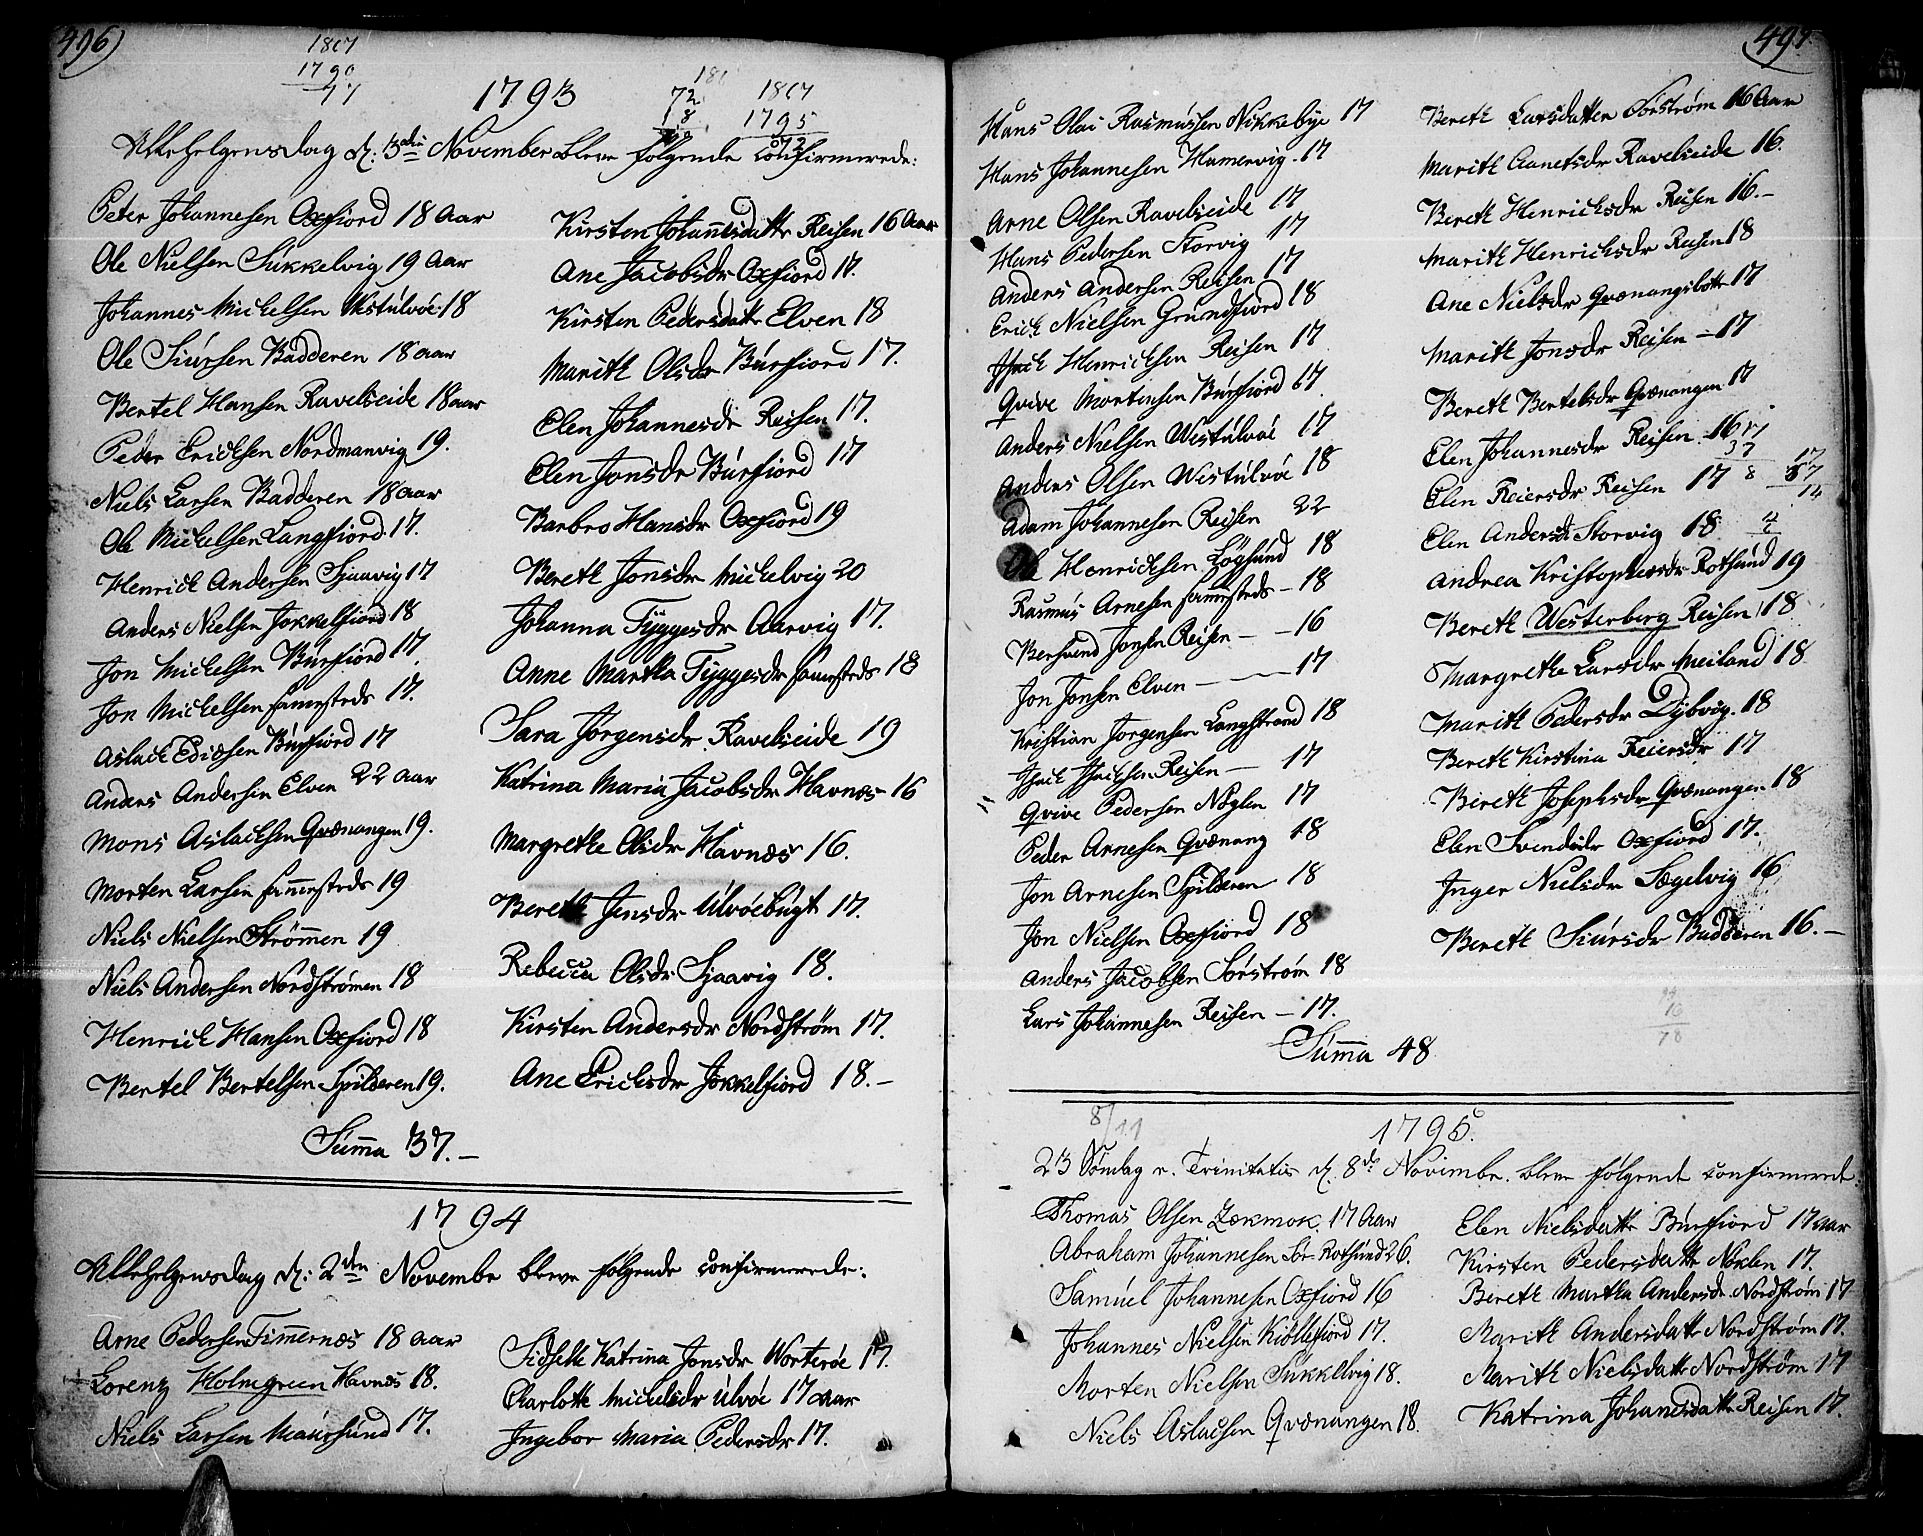 496)
1867
1790
77
1793
72
18
1867
1795
72
Allehelgensdag d: 3die November bleve følgende confirmerede:
Peter Johannesen Oxfiord 18 Aar
Ole Nielsen Sukkelvig 19 Aar
Johannes Michelsen Westulvøe 18
Ole Siursen Badderen 18 aar
Bertel Hansen Ravelseide 18 aar
Peder Erichsen Nordmanvig 19.
Niels Larsen Badderen 18 aar
Ole Michelsen Langfiord 17.
Henrich Andersen Sjaavig 17
Anders Nielsen Jokkelfiord 18
Jon Michelsen Burfiord 17.
Jon Michelsen sammesteds 17.
Aslach Edisen Burfiord 17
Anders Andersen Elven 22 aar
Mons Aslachsen Qvænangen 19.
Morten Larsen sammesteds 19
Niels Nielsen Strømmen 19
Niels Andersen Nordstrømen 18
Henrich Hansen Oxfiord 18
Bertel Bertelsen Spilderen 19.
Summa 37.-
Kirsten Johannesdattr Reisen 16 Aar
Ane Jacobsdr Oxfiord 17.
Kirsten Pedersdattr Elven 18
Marith Olsdr Burfiord 17.
Elen Johannesdr Reisen 17.
Elen Jonsdr Burfiord 17
Barbro Hansdr Oxfiord 19
Bereth Jonsdr Michelvig 20
Johanna Tyggesdr Aarvig 17.
Anne Martha Tyggesdr sammesteds 18
Sara Jørgensdr Ravelseide 19
Katrina Maria Jacobsdr Havnæs 16
Margrethe Olsdr Havnæs 16.
Bereth Jensdr Ulvøebugt 17.
Rebecca Olsdr Sjaavig 18.
Kirsten Andersdr Nordstrøm 17.
Ane Erichsdr Jokkelfiord 18.-
1794
Allehelgensdag d: 2den Novembr bleve følgende confirmerede:
Arne Pedersen Timmernæs 18 aar
Lorenz Holmgreen Havnæs 18.
Niels Larsen Maursund 17.
Sidselle Katrina Jonsdr Worterøe 17.
Charlotte Michelsdr Ulvøe 17 aar
Ingebor Maria Pedersdr 17.
497.
Hans Olai Rasmussen Nikkebye 17
Hans Johannesen Hamervig. 17
Arne Olsen Ravelseide 17
Hans Pedersen Storvig 17
Anders Andersen Reisen 17
Erich Nielsen Grundfiord 18
Isach Henrichsen Reisen 17
Qvive Mortensen Burfiord 17
Anders Nielsen Westulvøe 17
Anders Olsen Westulvøe 18
Adam Johannesen Reisen 22
Ole Henrichsen Løgsund 18
Rasmus Arnesen sammesteds - 18
Bersvend Jonsen Reisen - - 16
Jon Jonsen Elven - - 17
Kristian Jørgensen Langstrand 18
Isach Isachsen Reisen - 17
Qvive Pedersen Noklen 17
Peder Arnesen Qvænang 18
Jon Arnesen Spilderen 18
Jon Nielsen Oxfiord 18
Anders Jacobsen Sørstrøm 18
Lars Johannesen Reisen - 17.
Summa 48
Bereth Larsdatter Sørstrøm 16 Aar
Marith Aanetsdr Ravelseide 16.
Bereth Henrichsdr Reisen 16.-
Marith Henrichsdr Reisen 18
Ane Nielsdr Qvænangsbotn 17
Marith Jonsdr Reisen - 17
Bereth Bertelsdr Qvænangen 17
Elen Johannesdr Reisen - 16
Elen Reiersdr Reisen 17
Elen Andersdr Storvig 18
Andrea Kristophersdr Rotsund 19
Bereth Westerberg Reisen 18
Margrethe Larsdr Meiland 18
Marith Pedersdr Dybvig. 18
Bereth Kirstina Reiersdr 17
Bereth Josephsdr Qvænangen 18
Elen Svendsdr Oxfiord 17.
Inger Nielsdr Sægelvig 16
Bereth Siursdr Badderen 16.-
8/11
1795.
23 Søndag e. Trinitatis d. 8de Novembr. bleve følgende confirmerede
Thomas Olsen 17 Aar
Abraham Johannesen Sør-Rotsund 26.
Samuel Johannesen Oxfiord 16
Johannes Nielsen Kiollefiord 17.
Morten Nielsen Sukkelvig 18.
Niels Aslachsen Qvænangen 18.
Elen Nielsdattr Burfiord 17 aar
Kirsten Pedersdattr Noklen 17.
Bereth Martha Andersdr Nordstrøm 17
Marith Andersdattr Nordstrøm 17.
Marith Nielsdattr Nordstrøm 17
Katrina Johannesdattr Reisen 17.